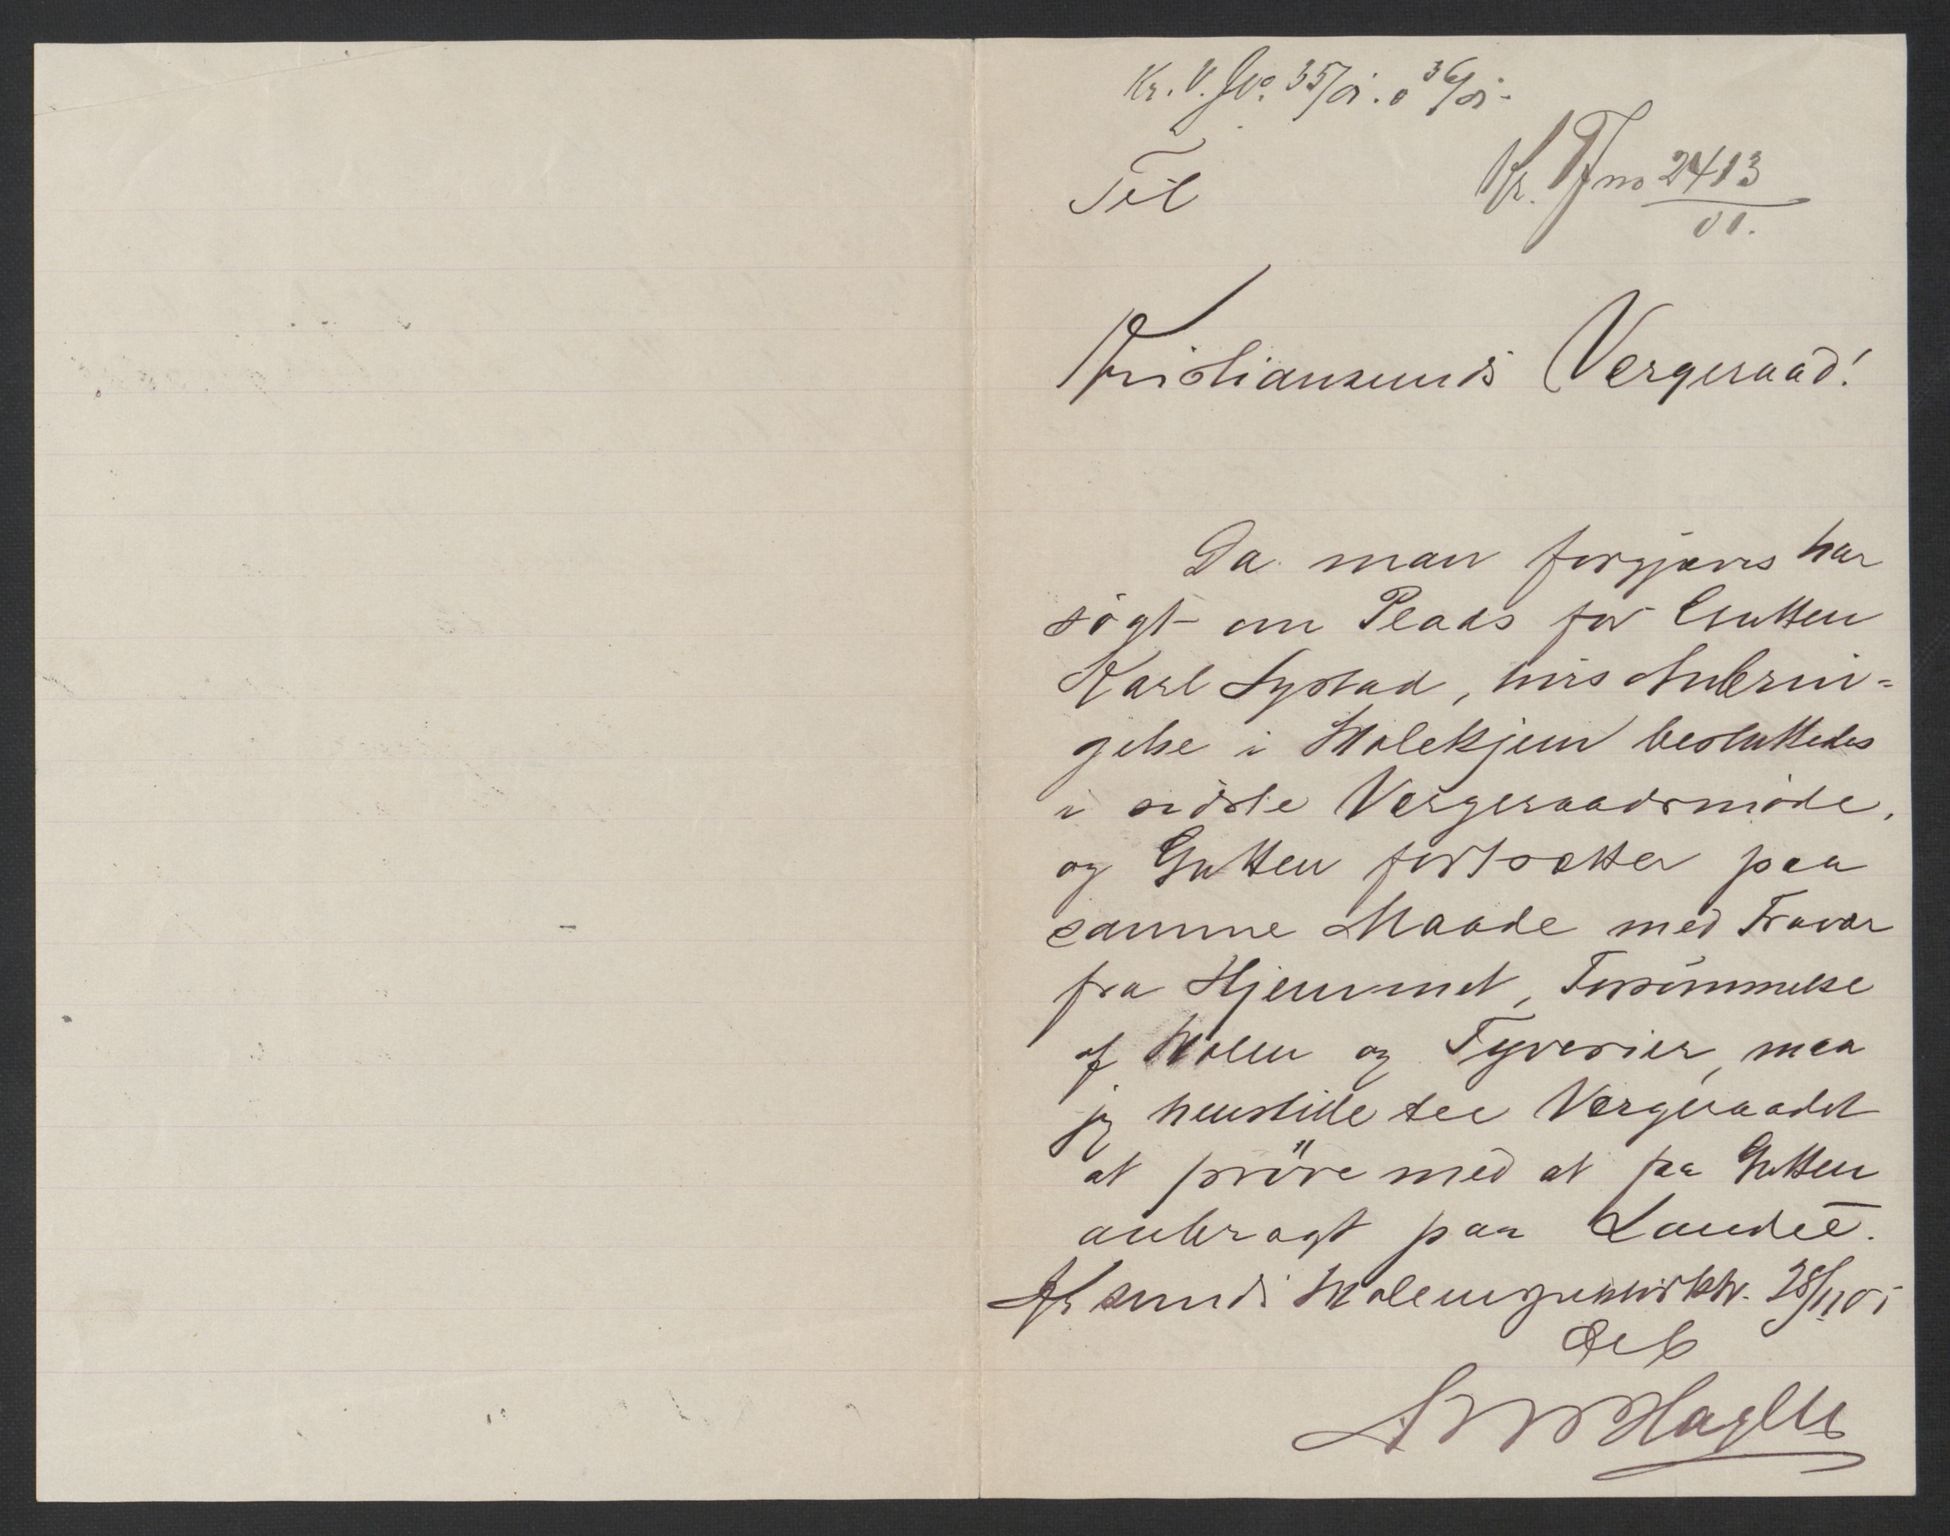 Kr. V. Jno. 35/01. o 36/01.
Kr. T Jno 2413
01.
Til
Kristiansunds Vergeraad!
Da man forgjæves har
søgt om Plads for Gutten
Karl Systad, hvis Anbrin=
gelse i Skolehjem besluttedes
i sidste Vergeraadsmøde,
og Gutten fortsætter paa
samme Maade med Fravær
fra Hjemmet, Forsømmelse
af Skolen og Tyverier, maa
jeg henstille til Vergeraadet
at prøve med at faa Gutten
anbragt paa Landet.
Kr sunds 28/11 01